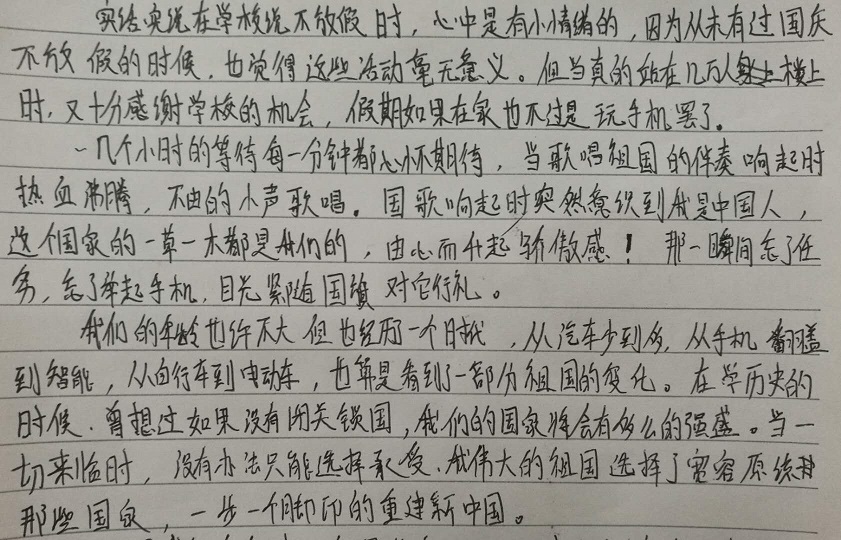 实话实说在学校说不放假时，心中是有小情绪的，因为从未有过国庆
不放假的时候，也觉得这些活动毫无意义。但当真的站在几万人操场上
时，又十分感谢学校的机会，假期如果在家也不过是玩手机罢了。
一几个小时的等待每一分钟都心怀期待，当歌唱祖国的伴奏响起时
热血沸腾，不由的小声歌唱。国歌响起时突然意识到我是中国人，
这个国家的一草一木都是我们的，由心而升起骄傲感！那一瞬间忘了任
务，忘了举起手机，目光紧随国旗对它行礼。
我们的年龄也许不大但也经历一个时代，从汽车少到多，从手机翻盖
到智能，从自行车到电动车，也算是看到了一部分祖国的变化。在学历史的
时候，曾想过如果没有闭关锁国，我们的国家将会有多么的强盛。当一
切来临时，没有办法只能选择承受，我伟大的祖国选择了宽容原谅
那些国家，一步一个脚印的重建新中国。